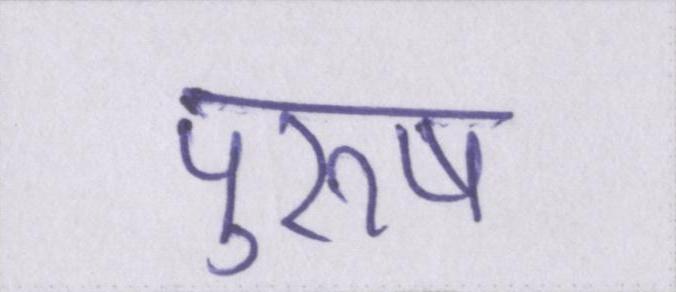 पुरुष